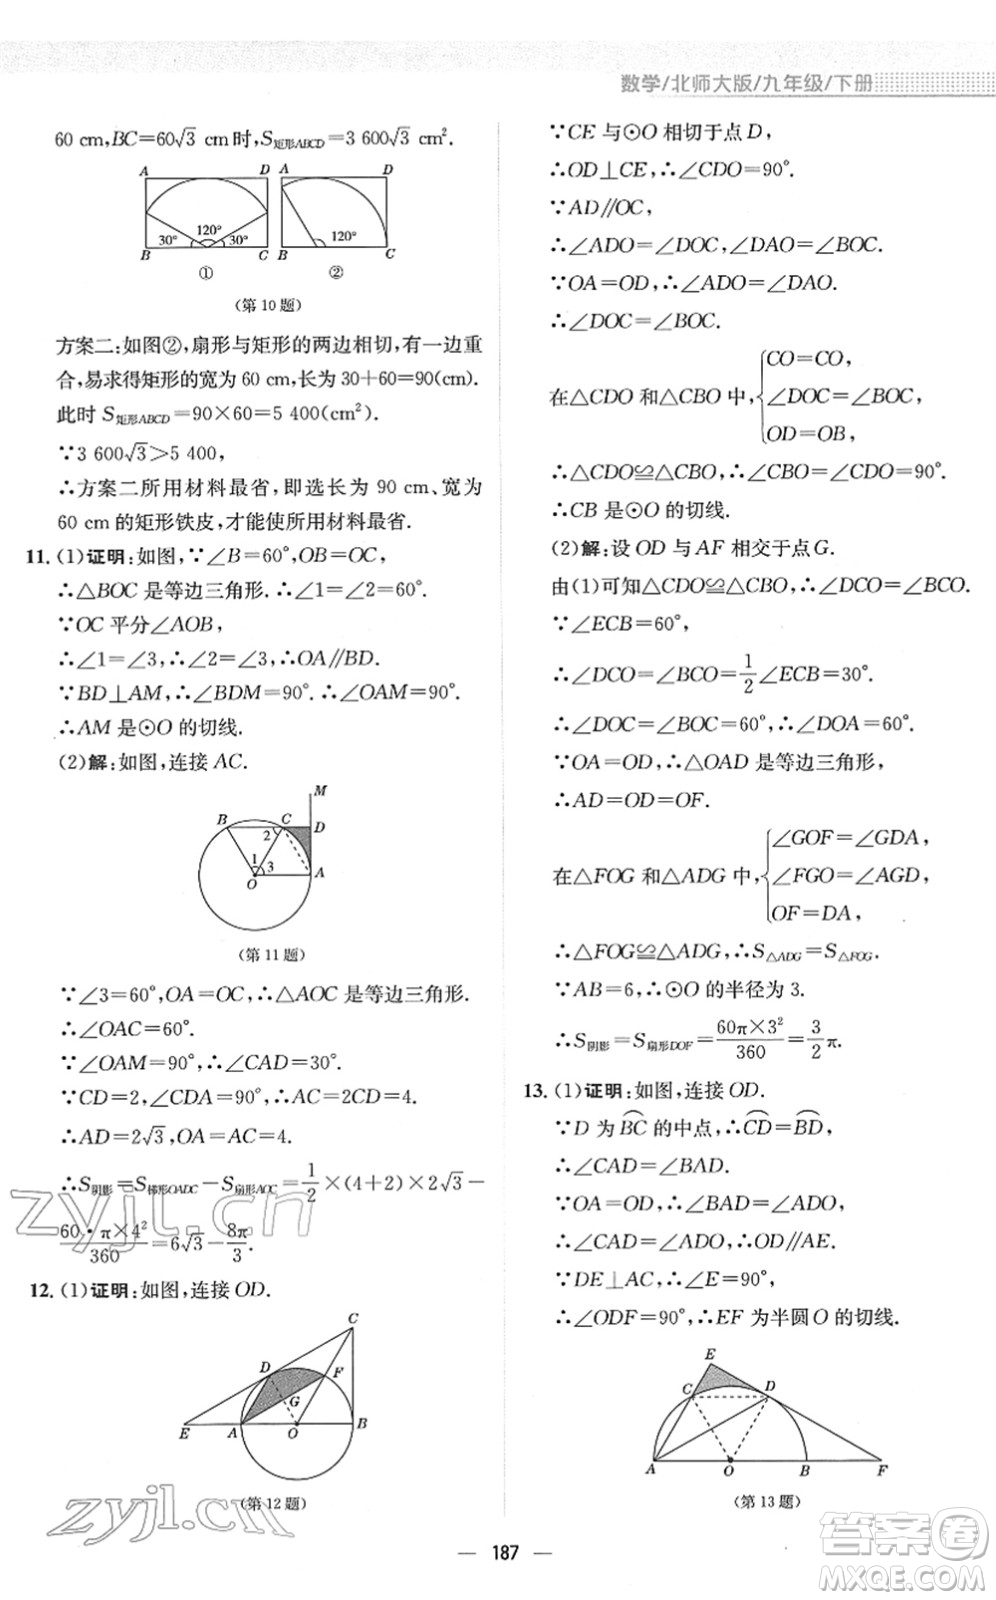 数学/北师大版/九年级/下册
60 cm,BC=60√3 cm时,S矩形ABCD=3 600√3 cm².
A D A D
120° 30° 30° 120°
B C B C
① ②
(第10题)
方案二:如图②,扇形与矩形的两边相切,有一边重
合,易求得矩形的宽为60 cm,长为30+60=90(cm).
此时 S矩形ABCD=90×60=5 400(cm²).
∵3 600√3>5 400,
∴方案二所用材料最省,即选长为 90 cm、宽为
60 cm的矩形铁皮,才能使所用材料最省.
11. (1)证明:如图,∵∠B=60°,OB=OC,
∴△BOC是等边三角形.∴∠1=∠2=60°.
∵OC平分∠AOB,
∴∠1=∠3,∴∠2=∠3,∴OA//BD.
∵BD⊥AM,∴∠BDM=90°.∴∠OAM=90°.
∴AM是⊙O的切线.
(2)解:如图,连接AC.
M
B C D
2 1 3
O A
(第11题)
∵∠3=60°,OA=OC,∴△AOC是等边三角形.
∴∠OAC=60°.
∵∠OAM=90°,∴∠CAD=30°.
∵CD=2,∠CDA=90°,∴AC=2CD=4.
∴AD=2√3,∴OA=AC=4.
∴S阴影=S梯形OADC−S扇形AOC=1/2×(4+2)×2√3−
60·π×4²/360=6√3−8π/3.
12. (1)证明:如图,连接OD.
C
D F
G
E A O B
(第12题)
∵CE与⊙O相切于点D,
∴OD⊥CE,∴∠CDO=90°.
∵AD//OC,
∴∠ADO=∠DOC,∠DAO=∠BOC.
∵OA=OD,∴∠ADO=∠DAO.
∴∠DOC=∠BOC.
在△CDO和△CBO中,{CO=CO,
∠DOC=∠BOC,
OD=OB,
∴△CDO≌△CBO,∴∠CBO=∠CDO=90°.
∴CB是⊙O的切线.
(2)解:设OD与AF相交于点G.
由(1)可知△CDO≌△CBO,∴∠DCO=∠BCO.
∵∠ECB=60°,
∴∠DCO=∠BCO=1/2∠ECB=30°.
∴∠DOC=∠BOC=60°,∴∠DOA=60°.
∵OA=OD,∴△OAD是等边三角形,
∴AD=OD=OF.
在△FOG和△ADG中,{∠GOF=∠GDA,
∠FGO=∠AGD,
OF=DA,
∴△FOG≌△ADG,∴S△ADG=S△FOG.
∵AB=6,∴⊙O的半径为3.
∴S阴影=S扇形DOF=60π×3²/360=3/2π.
13. (1)证明:如图,连接OD.
∵D为BC⌒的中点,∴CD⌒=BD⌒,
∴∠CAD=∠BAD.
∵OA=OD,∴∠BAD=∠ADO.
∴∠CAD=∠ADO,∴OD//AE.
∵DE⊥AC,∴∠E=90°.
∴∠ODF=90°,∴EF为半圆O的切线.
E
C D
A O B F
(第13题)
187
zyjl.cn
zyjl.cn
答案卷
MXQE.COM